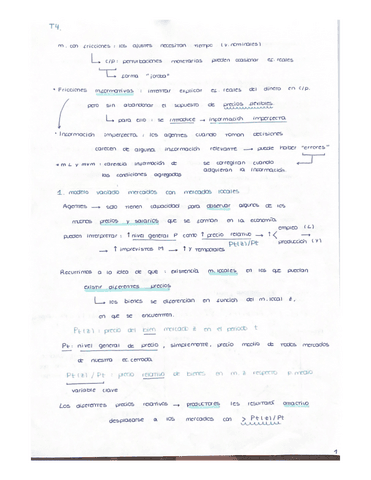 T4
m. con fricciones : los ajustes necesitan tiempo (v nominales)
c/p : perturbaciones monetarias pueden ocasionar ec reales
forma "jorada"
• Fricciones informativas : intentar explicar ec reales del dinero en c/p.
pero sin abandonar el supuesto de precios flexibles.
para ello : se introduce → información imperfecta
• Información imperfecta : los agentes cuando toman decisiones
carecen de alguna información relevante → puede haber "errores"
carencia información de las condiciones agregadas
se corregirán cuando adquieran la información.
1 modelo variado mercados con mercados locales.
Agentes → solo tienen capacidad para observar algunos de los
muchos precios y salarios que se forman en la economía.
pueden interpretar : ↑ nivel general P como ↑ precio relativo → ↑ empleo (L)
Pt(z)/Pt producción (Y)
→ ↑ imprevistos M → ↑ Y temporales
Recurrimos a la idea de que : existencia m. locales en los que puedan
existir diferentes precios
los bienes se diferencian en función del m. local z,
en el que se encuentren.
Pt(z) : precio del bien mercado z en el periodo t
Pt : nivel general de precio, simplemente, precio medio de todos mercados
de nuestra ec. cerrada.
Pt(z)/Pt : precio relativo de bienes en m. z respecto P medio
variable clave
Los diferentes precios relativos → productores les resultará atractivo
desplazarse a los mercados con > Pt(z)/Pt
1